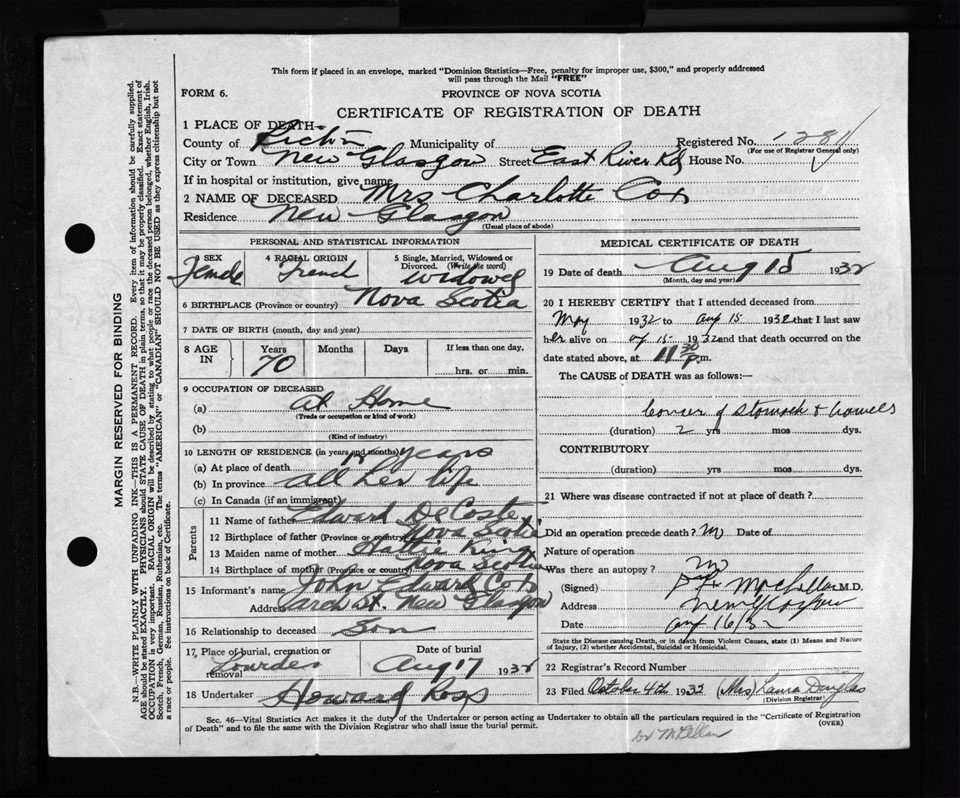 This form if placed in an envelope, marked "Dominion Statistics—Free, penalty for improper use, $300," and properly addressed
will pass through the Mail "FREE"
FORM 6.
PROVINCE OF NOVA SCOTIA
CERTIFICATE OF REGISTRATION OF DEATH
1 PLACE OF DEATH—
County of Pictou Municipality of Registered No.
(For use of Registrar General only)
City or Town New Glasgow Street East River Rd House No.
If in hospital or institution, give name
2 NAME OF DECEASED Mrs Charlotte Cox
Residence New Glasgow
(Usual place of abode)
PERSONAL AND STATISTICAL INFORMATION
3 SEX 4 RACIAL ORIGIN 5 Single, Married, Widowed or
Divorced. (Write the word)
Female French Widowed
6 BIRTHPLACE (Province or country) Nova Scotia
7 DATE OF BIRTH (month, day and year)
8 AGE IN Years Months Days If less than one day,
70 hrs. or min.
9 OCCUPATION OF DECEASED
(a) At Home
(Trade or occupation or kind of work)
(b)
(Kind of industry)
10 LENGTH OF RESIDENCE (in years and months)
(a) At place of death years
(b) In province all her life
(c) In Canada (if an immigrant)
Parents
11 Name of father Edward DeCoste
12 Birthplace of father (Province or country) Nova Scotia
13 Maiden name of mother Hattie King
14 Birthplace of mother (Province or country) Nova Scotia
15 Informant's name John Edward Cox
Address Arch St. New Glasgow
16 Relationship to deceased Son
17 Place of burial, cremation or removal Date of burial
Lourdes Aug 17 1932
18 Undertaker Howard Ross
MEDICAL CERTIFICATE OF DEATH
19 Date of death Aug 15 1932
(Month, day and year)
20 I HEREBY CERTIFY that I attended deceased from
May 1932 to Aug 15 1932 that I last saw
her alive on 15 1932 and that death occurred on
date stated above, at 11 30 p.m.
The CAUSE of DEATH was as follows:—
Cancer of Stomach & bowels
(duration) 2 yrs mos dys.
CONTRIBUTORY
(duration) yrs mos dys.
21 Where was disease contracted if not at place of death?
Did an operation precede death? no Date of
Nature of operation
Was there an autopsy? no
(Signed) M.D.
Address New Glasgow
Date Aug 16/32
State the Disease causing Death, or in death from Violent Causes, state (1) Means and Nature
of Injury, (2) whether Accidental, Suicidal or Homicidal.
22 Registrar's Record Number
23 Filed October 4th 1932 (Mrs) Laura Douglas
(Division Registrar)
Sec. 46—Vital Statistics Act makes it the duty of the Undertaker or person acting as Undertaker to obtain all the particulars required in the "Certificate of Registration
of Death" and to file the same with the Division Registrar who shall issue the burial permit.
(OVER)
MARGIN RESERVED FOR BINDING
N.B.—WRITE PLAINLY WITH UNFADING INK—THIS IS A PERMANENT RECORD. Every item of information should be carefully supplied.
AGE should be stated EXACTLY. PHYSICIANS should STATE CAUSE OF DEATH in plain terms, so that it may be properly classified. Exact statement of
OCCUPATION is very important. RACIAL ORIGIN will be described by stating to what people or race the deceased person belonged, whether English, Irish,
Scotch, French, German, Russian, Ruthenian, etc. The terms "AMERICAN" or "CANADIAN" SHOULD NOT BE USED as they express citizenship but not
a race or people. See instructions on back of Certificate.